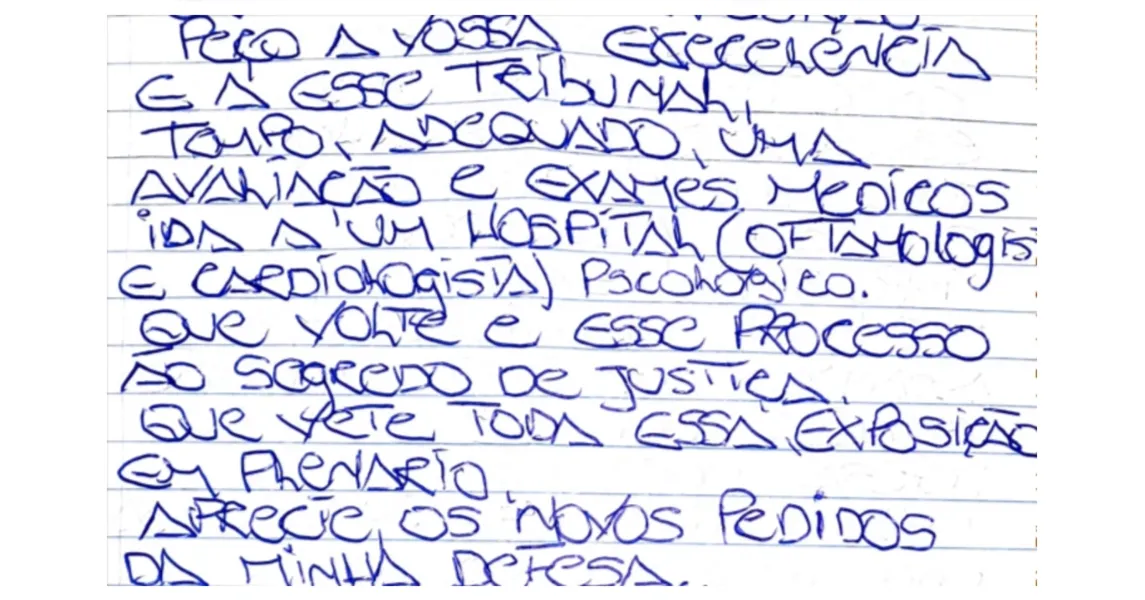 PEÇO A VOSSA EXECELÊNCIA
E A ESSE TRIBUNAL,
TEMPO, ADEQUADO, UMA
AVALIAÇÃO E EXAMES MEDICOS
IDA A UM HOSPITAL (OFTAMOLOGIS
E CARDIOLOGISTA) PSCOLÓGICO.
QUE VOLTE E ESSE PROCESSO
AO SEGREDO DE JUSTIÇA.
QUE VETE TODA ESSA EXPOSIÇÃO
EM PLENARIO,
APRECIE, OS NOVOS PEDIDOS
DA MINHA DEFESA.